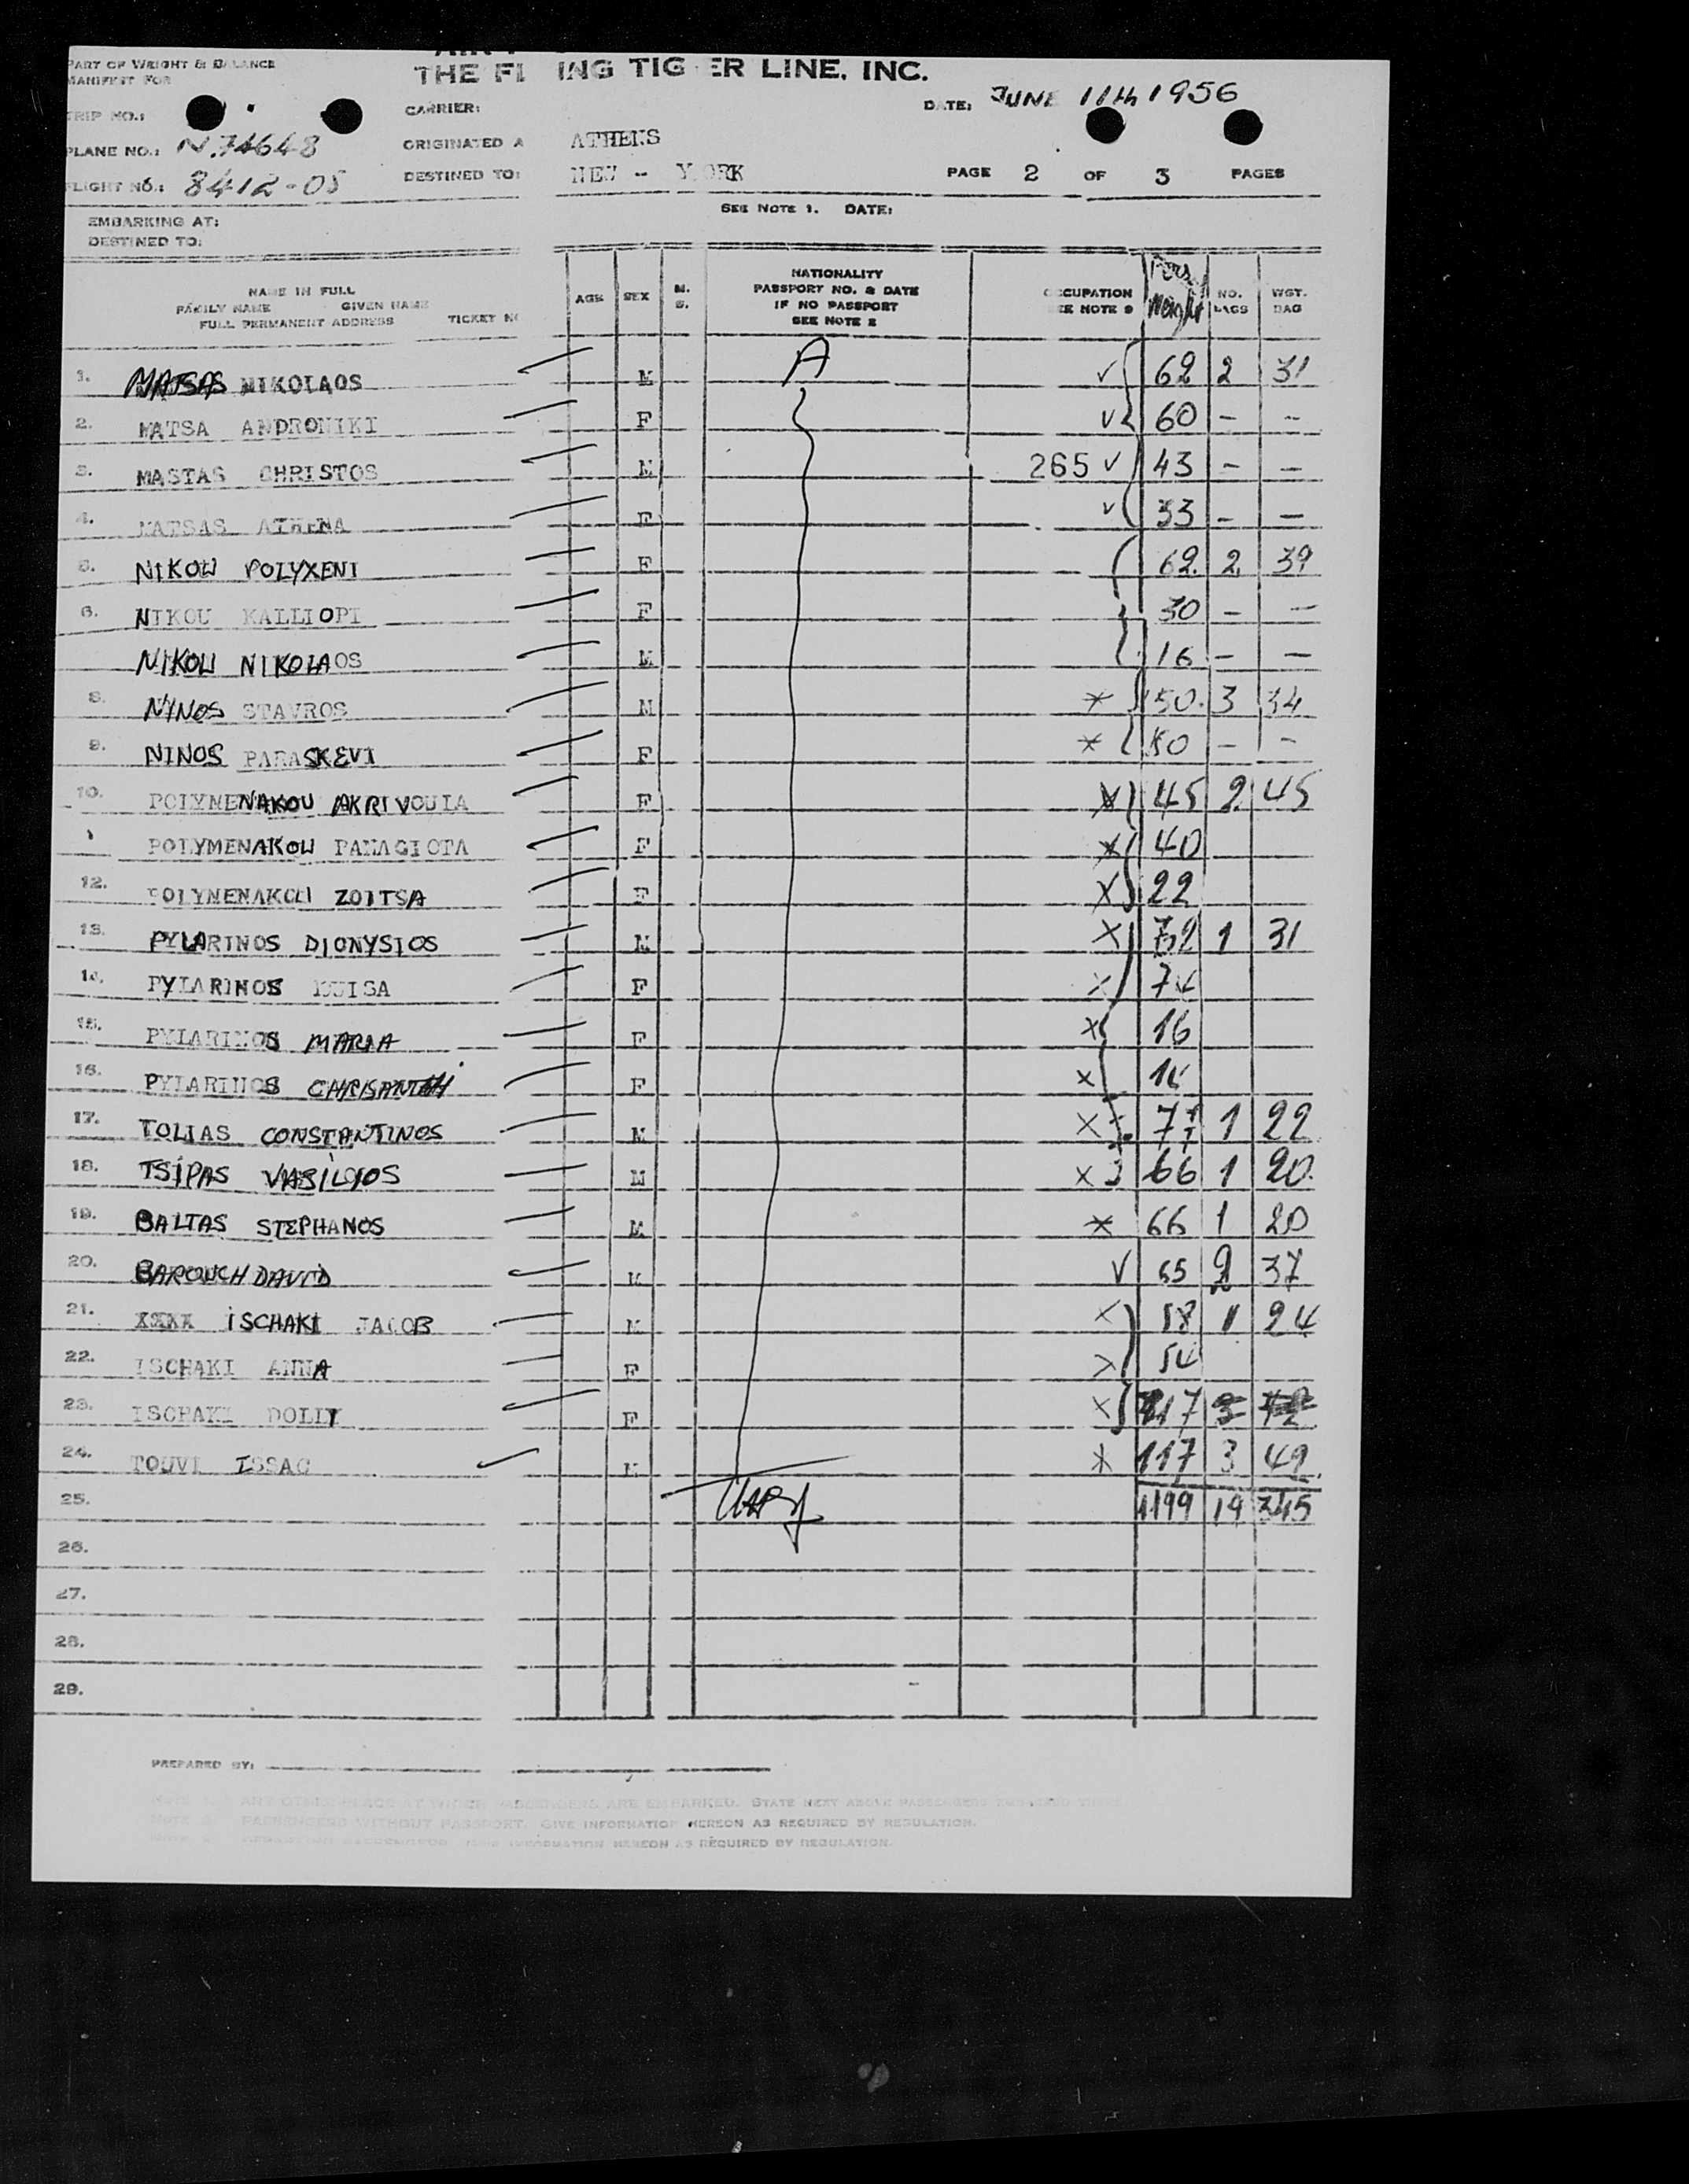 PART OF WEIGHT & BALANCE
MANIFEST FOR
THE FL ING TIG ER LINE, INC.
TRIP NO.:
CARRIER:
DATE: JUNE 11th 1956
PLANE NO.: N.74648
ORIGINATED A ATHENS
FLIGHT NO.: 8412-05
DESTINED TO: NEW - YORK
PAGE 2 OF 3 PAGES
SEE NOTE 1. DATE:
EMBARKING AT:
DESTINED TO:
NAME IN FULL
FAMILY NAME GIVEN NAME
FULL PERMANENT ADDRESS TICKET NO
AGE SEX M. S.
NATIONALITY
PASSPORT NO. & DATE
IF NO PASSPORT
SEE NOTE 2
OCCUPATION
SEE NOTE 3
Weight
NO. BAGS
WGT. BAG
1. MATSAS NIKOLAOS M A ✓ 62 2 31
2. MATSA ANDRONIKI F ✓ 60 - -
3. MASTAS CHRISTOS M 265 ✓ 43 - -
4. MATSAS ATHENA F ✓ 33 - -
5. NIKOU POLYXENI F 62 2 39
6. NIKOU KALLIOPI F 30 - -
NIKOU NIKOLAOS M 16 - -
8. NINOS STAVROS M 50 3 34
9. NINOS PARASKEVI F 50 - -
10. POLYMENAKOU AKRIVOULA F 45 2 45
POLYMENAKOU PANAGIOTA F 40
12. POLYMENAKOU ZOITSA F X 22
13. PYLARINOS DIONYSIOS M X 72 1 31
14. PYLARINOS LUISA F X 74
15. PYLARINOS MARIA F X 16
16. PYLARINOS CHRISANTHI F X 14
17. TOLIAS CONSTANTINOS M X 77 1 22
18. TSIPAS VASILIOS M X 66 1 20
19. BALTAS STEPHANOS M 66 1 20
20. BAROUCH DAVID M ✓ 65 2 37
21. XXXX ISCHAKI JACOB M X 58 1 24
22. ISCHAKI ANNA F X 54
23. ISCHAKI DOLLY F X 17
24. TOUVI ISSAC M 117 3 49
25. 1199 19 345
26.
27.
28.
29.
PREPARED BY:
ANY OTHER PLACE AT WHICH PASSENGERS ARE EMBARKED. STATE NEXT ABOVE PASSENGERS
PASSENGERS WITHOUT PASSPORT. GIVE INFORMATION HEREON AS REQUIRED BY REGULATION.
INFORMATION HEREON AS REQUIRED BY REGULATION.